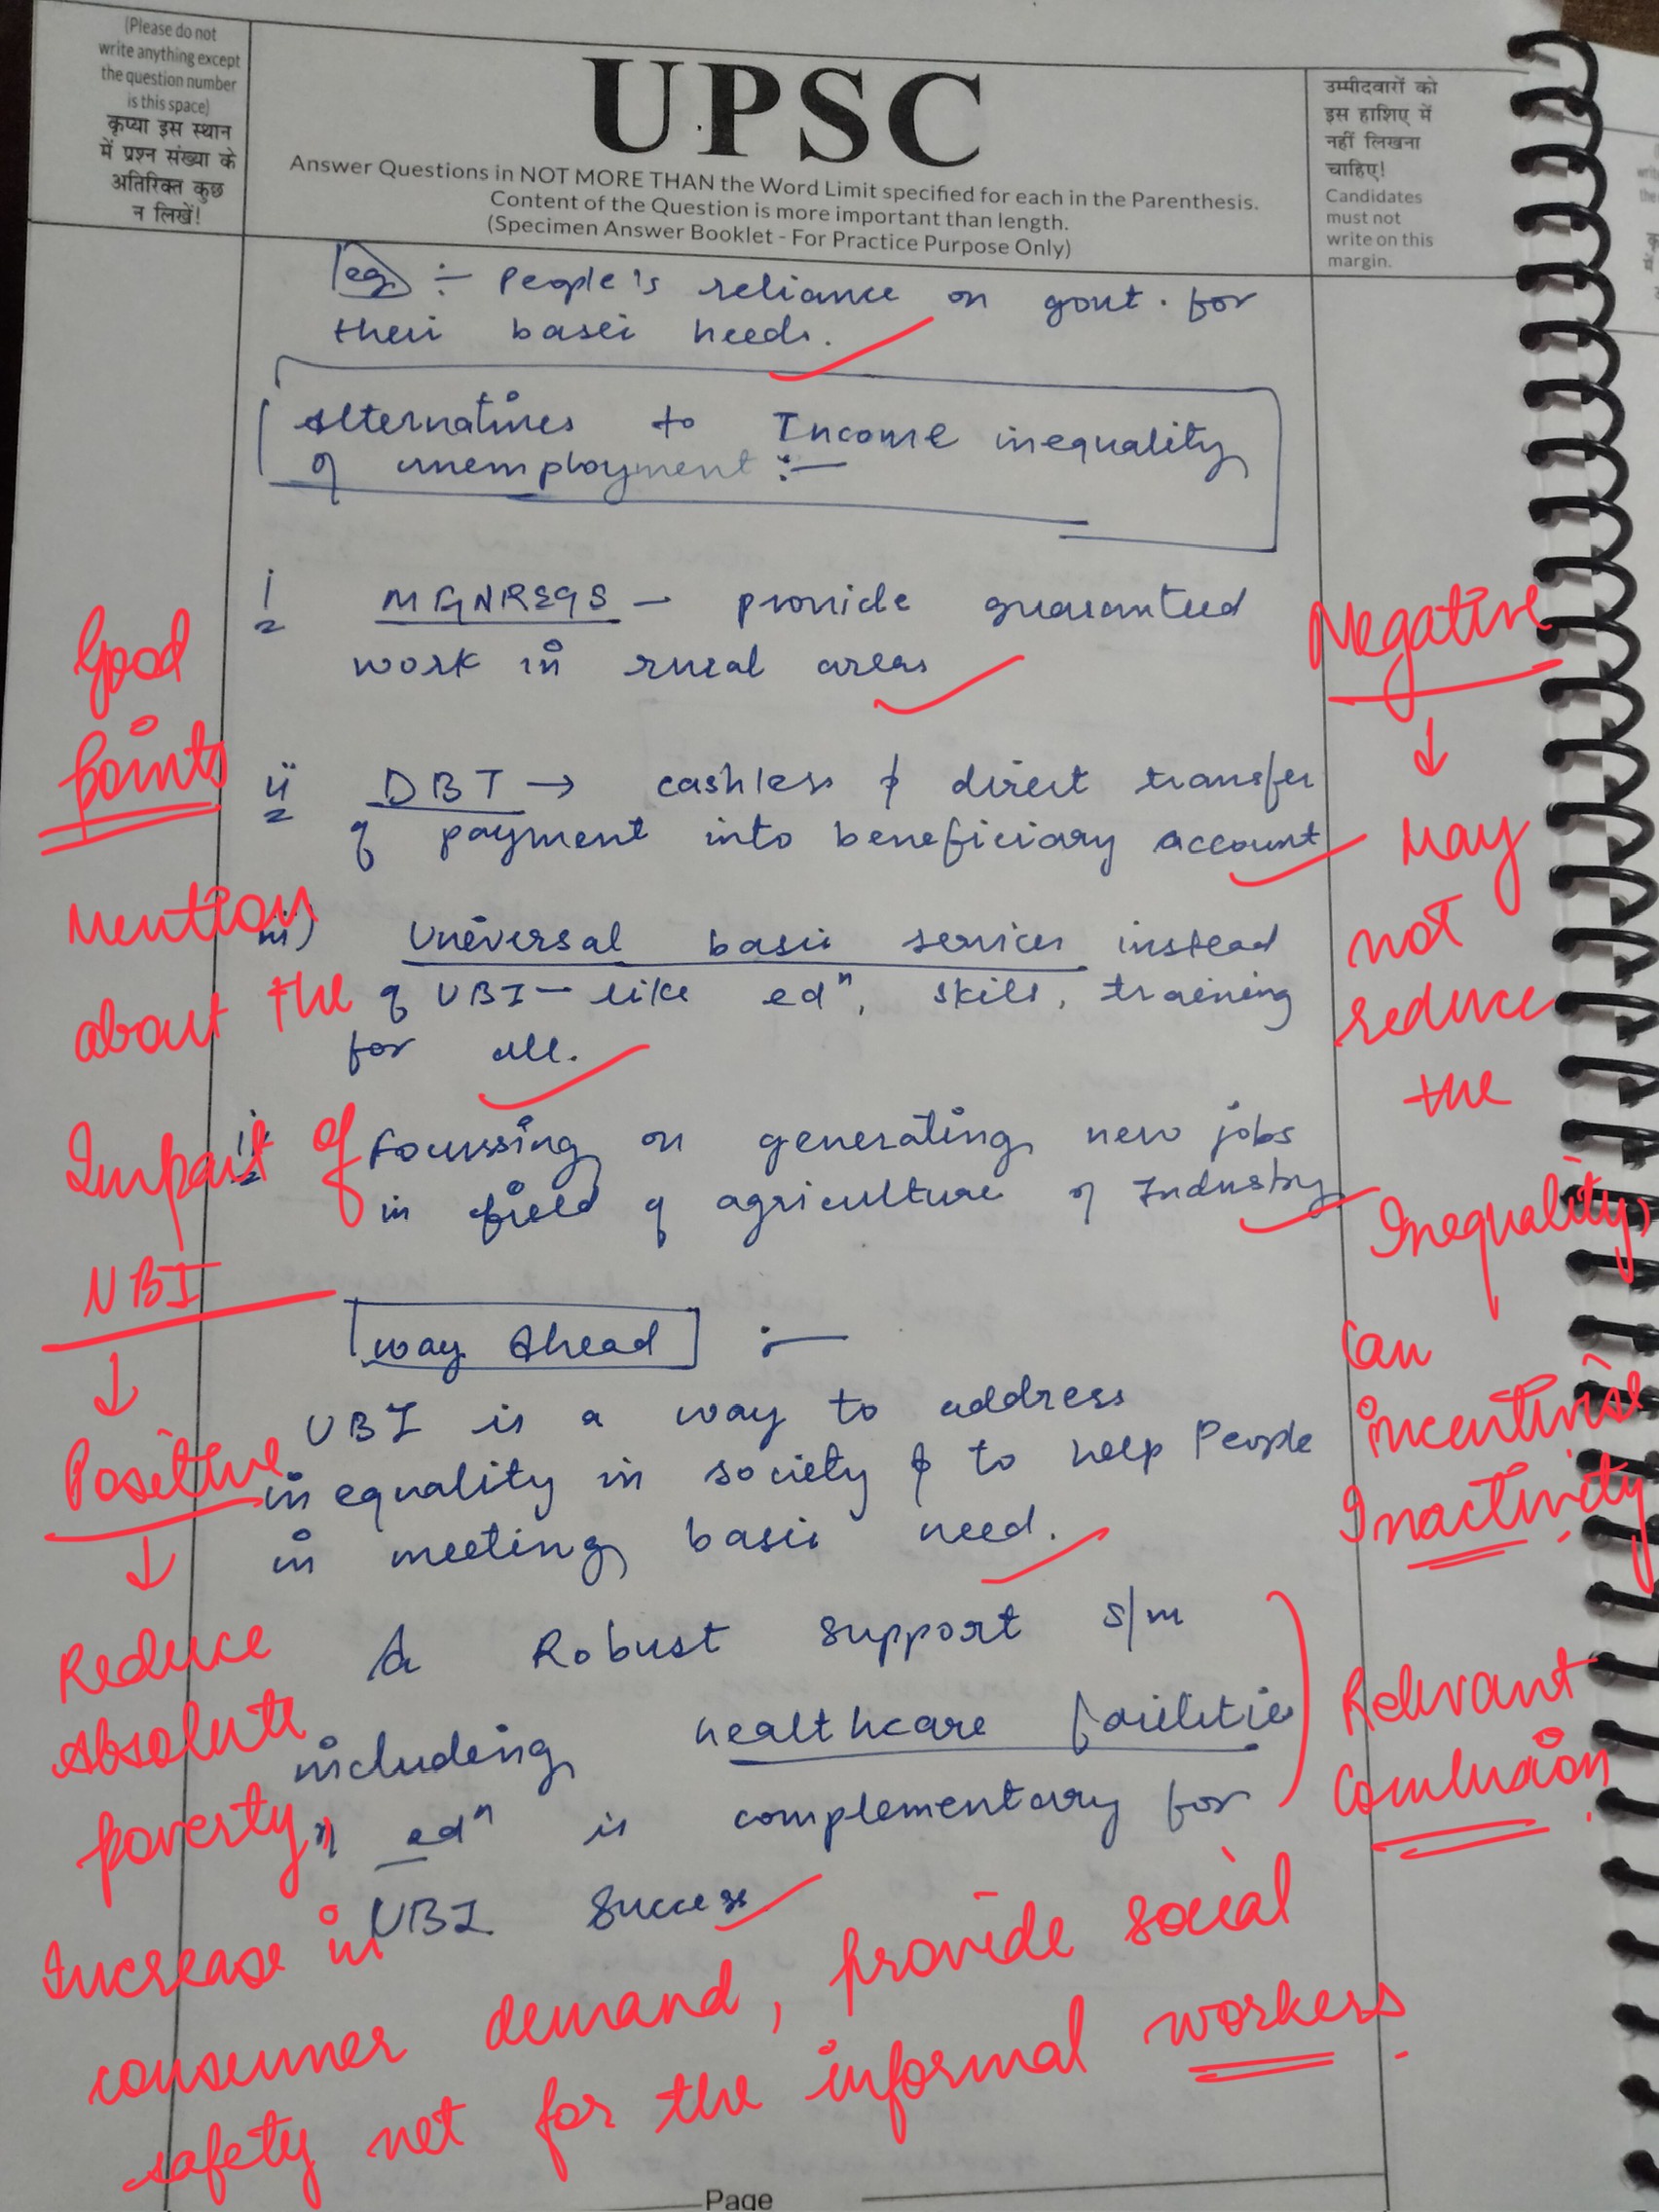 (Please do not
write anything except
the question number
is this space)
कृप्या इस स्थान
में प्रश्न संख्या के
अतिरिक्त कुछ
न लिखें!
UPSC
Answer Questions in NOT MORE THAN the Word Limit specified for each in the Parenthesis.
Content of the Question is more important than length.
(Specimen Answer Booklet - For Practice Purpose Only)
उम्मीदवारों को
इस हाशिए में
नहीं लिखना
चाहिए!
Candidates
must not
write on this
margin.
eg :- People's reliance on govt. for
their basic needs.
Alternatives to Income inequality
& unemployment :-
i MGNREGS - provide guaranteed
work in rural areas
ii DBT → cashless & direct transfer
of payment into beneficiary account
iii) Universal basic services instead
of UBI - like edⁿ, skill, training
for all.
Focussing on generating new jobs
in field of agriculture & Industry
Way Ahead :-
UBI is a way to address
inequality in society & to help People
in meeting basic need.
A Robust support s/m
including healthcare facilities
& edⁿ is complementary for
UBI success
Good
Points
Mention
about the
Impact of
UBI
↓
Positive
↓
Reduce
Absolute
poverty,
Increase in
consumer demand, provide social
safety net for the informal workers.
Negative
↓
May
not
reduce
the
Inequality,
Can
incentivise
Inactivity
Relevant
Conclusion
Page